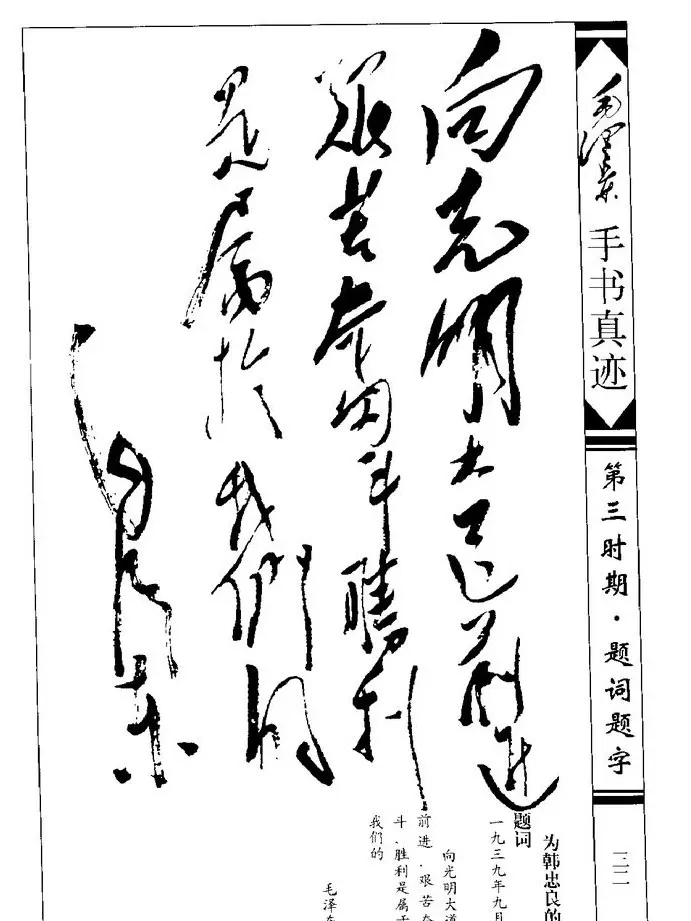 向光明大道前進
艰苦奋鬥勝利
是属於我們的
毛泽东
毛泽东
手书真迹
第三时期·题词题字
为韩忠良的
题词
一九三九年九月
向光明大道
前进，艰苦奋
斗，胜利是属于
我们的
毛泽东